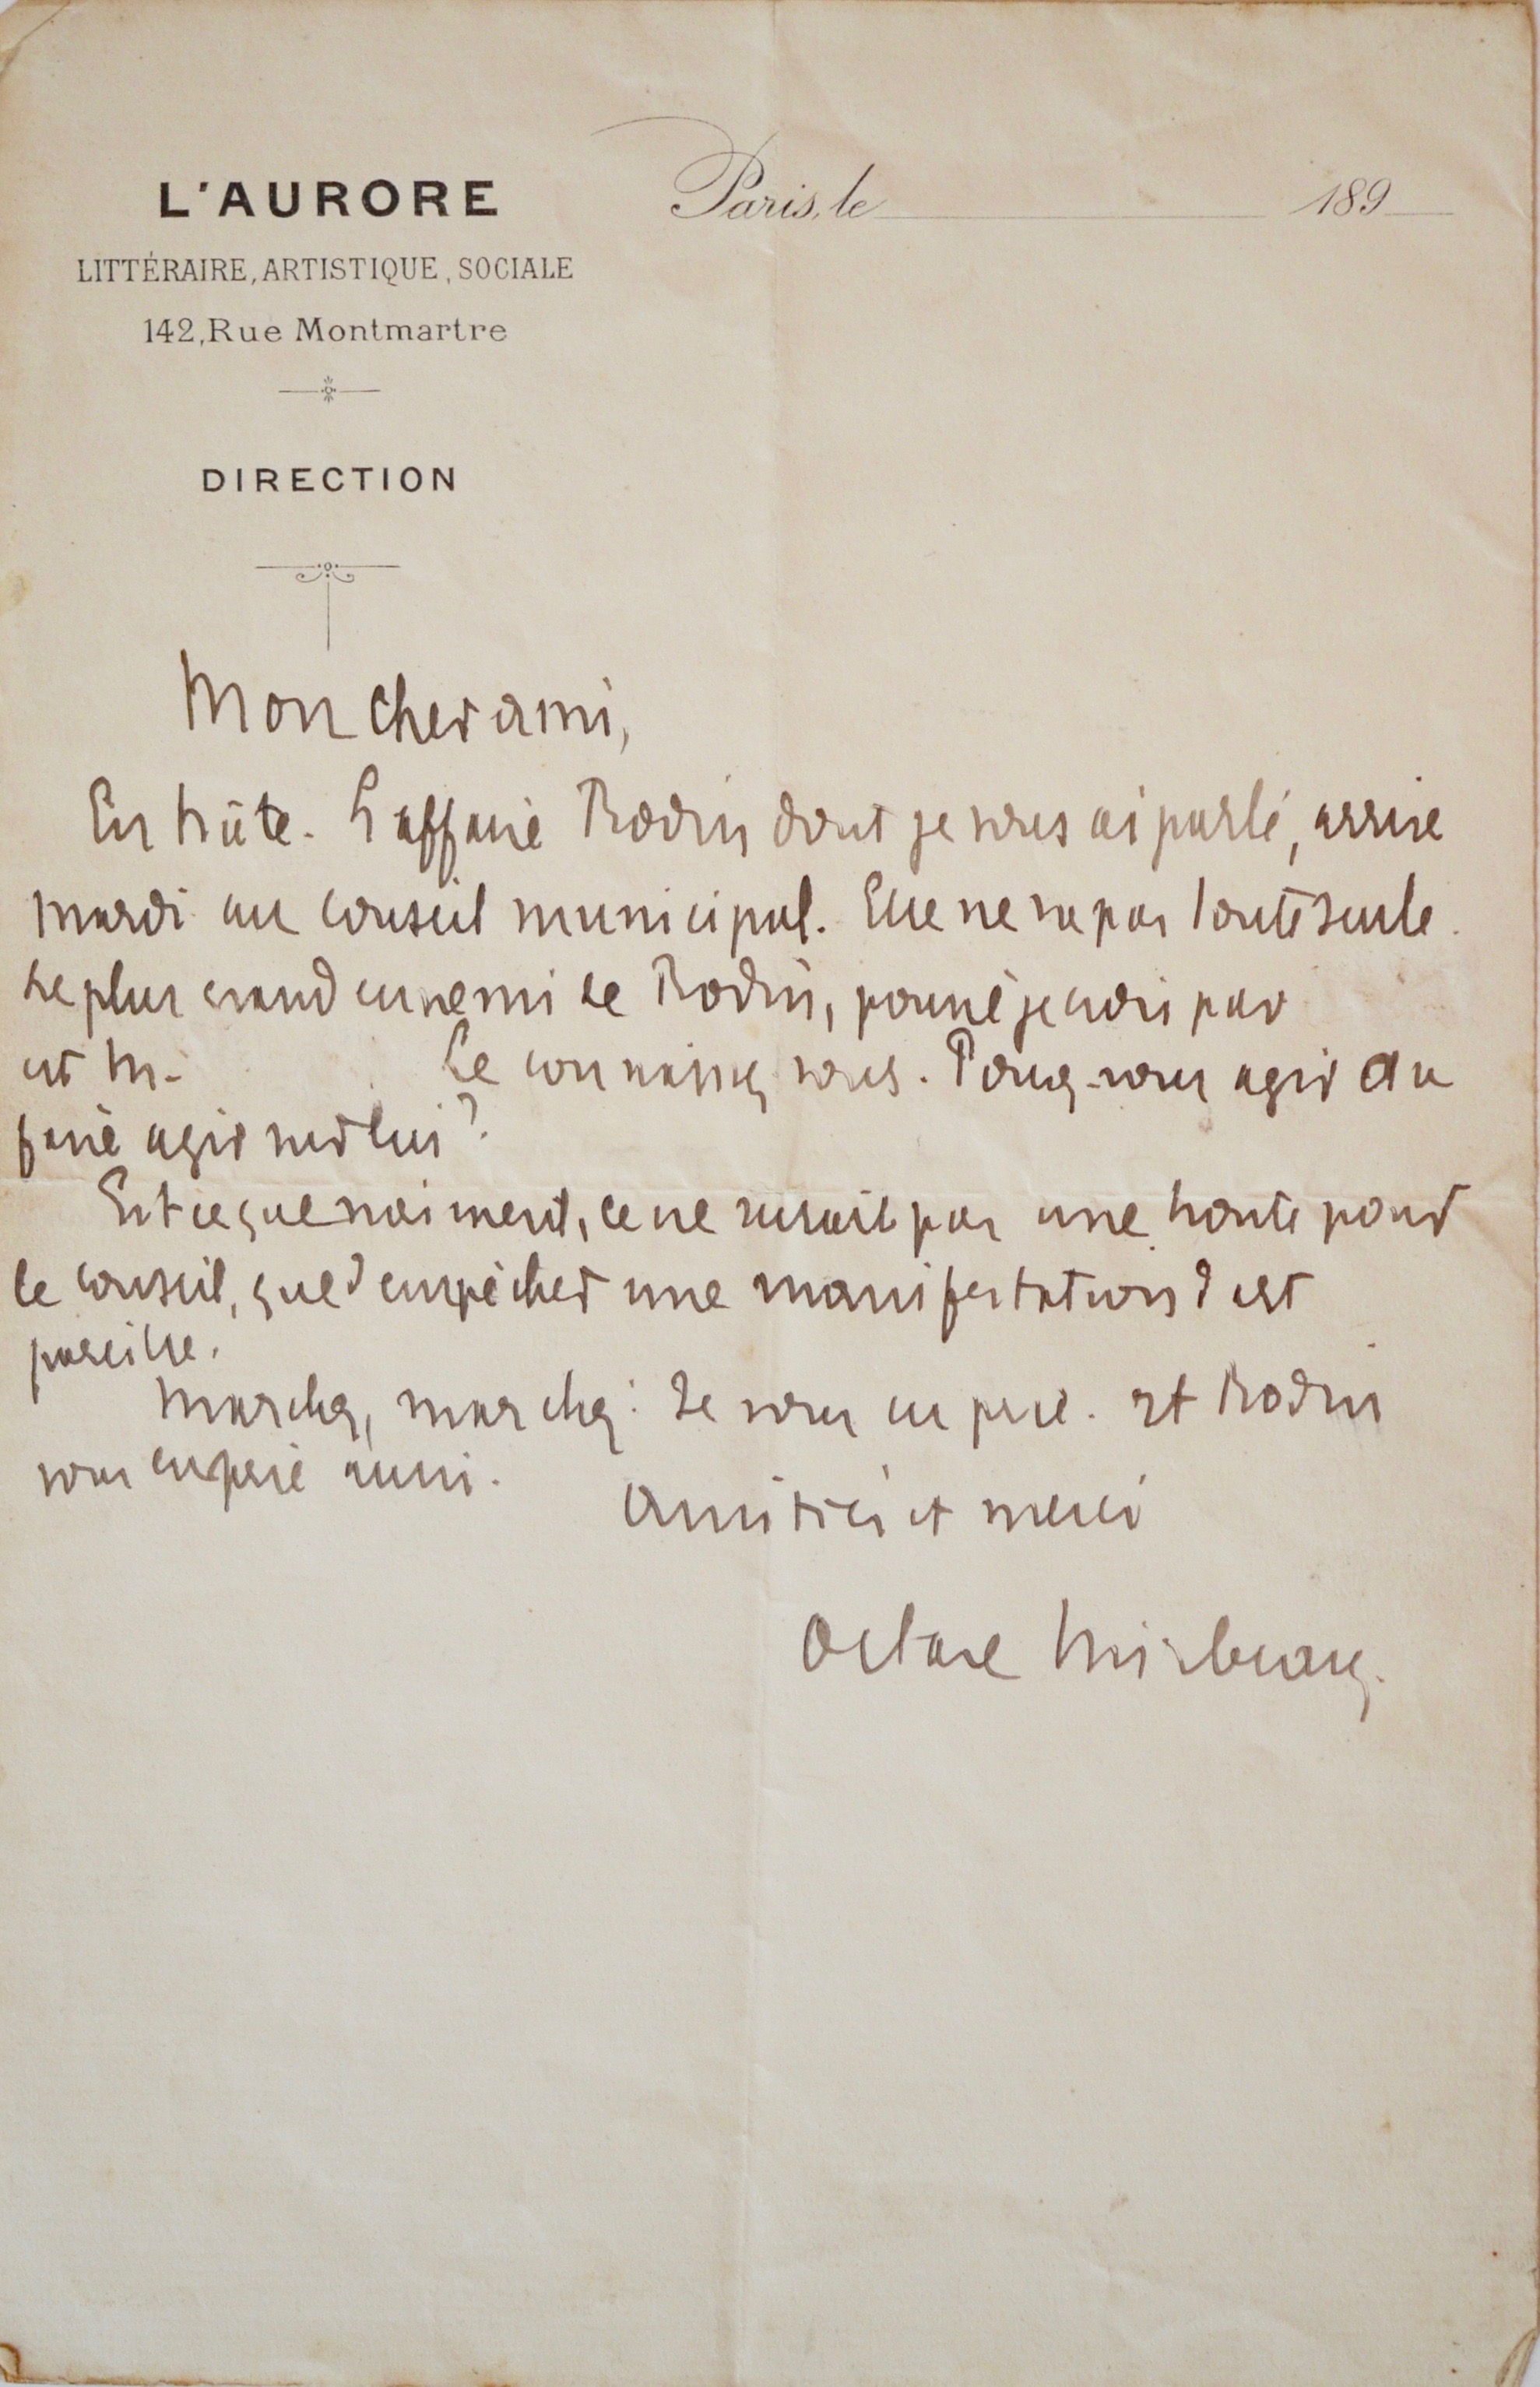 L'AURORE
LITTÉRAIRE, ARTISTIQUE, SOCIALE
142, Rue Montmartre
DIRECTION
Paris, le 189
Mon cher ami,
En hâte. L'affaire Rodin dont je vous ai parlé, arrive
mardi au conseil municipal. Elle ne va pas toute seule.
Le plus grand ennemi de Rodin, poussé je crois par
est M.
Le connaissez vous. Pouvez-vous agir ou
faire agir sur lui ?
Est ce que vraiment, ce ne serait pas une honte pour
le conseil, que d'empêcher une manifestation d'art
pareille.
Marchez, marchez : Je vous en prie. Et Rodin
vous en prie aussi.
Amitiés et merci
Octave Mirbeau